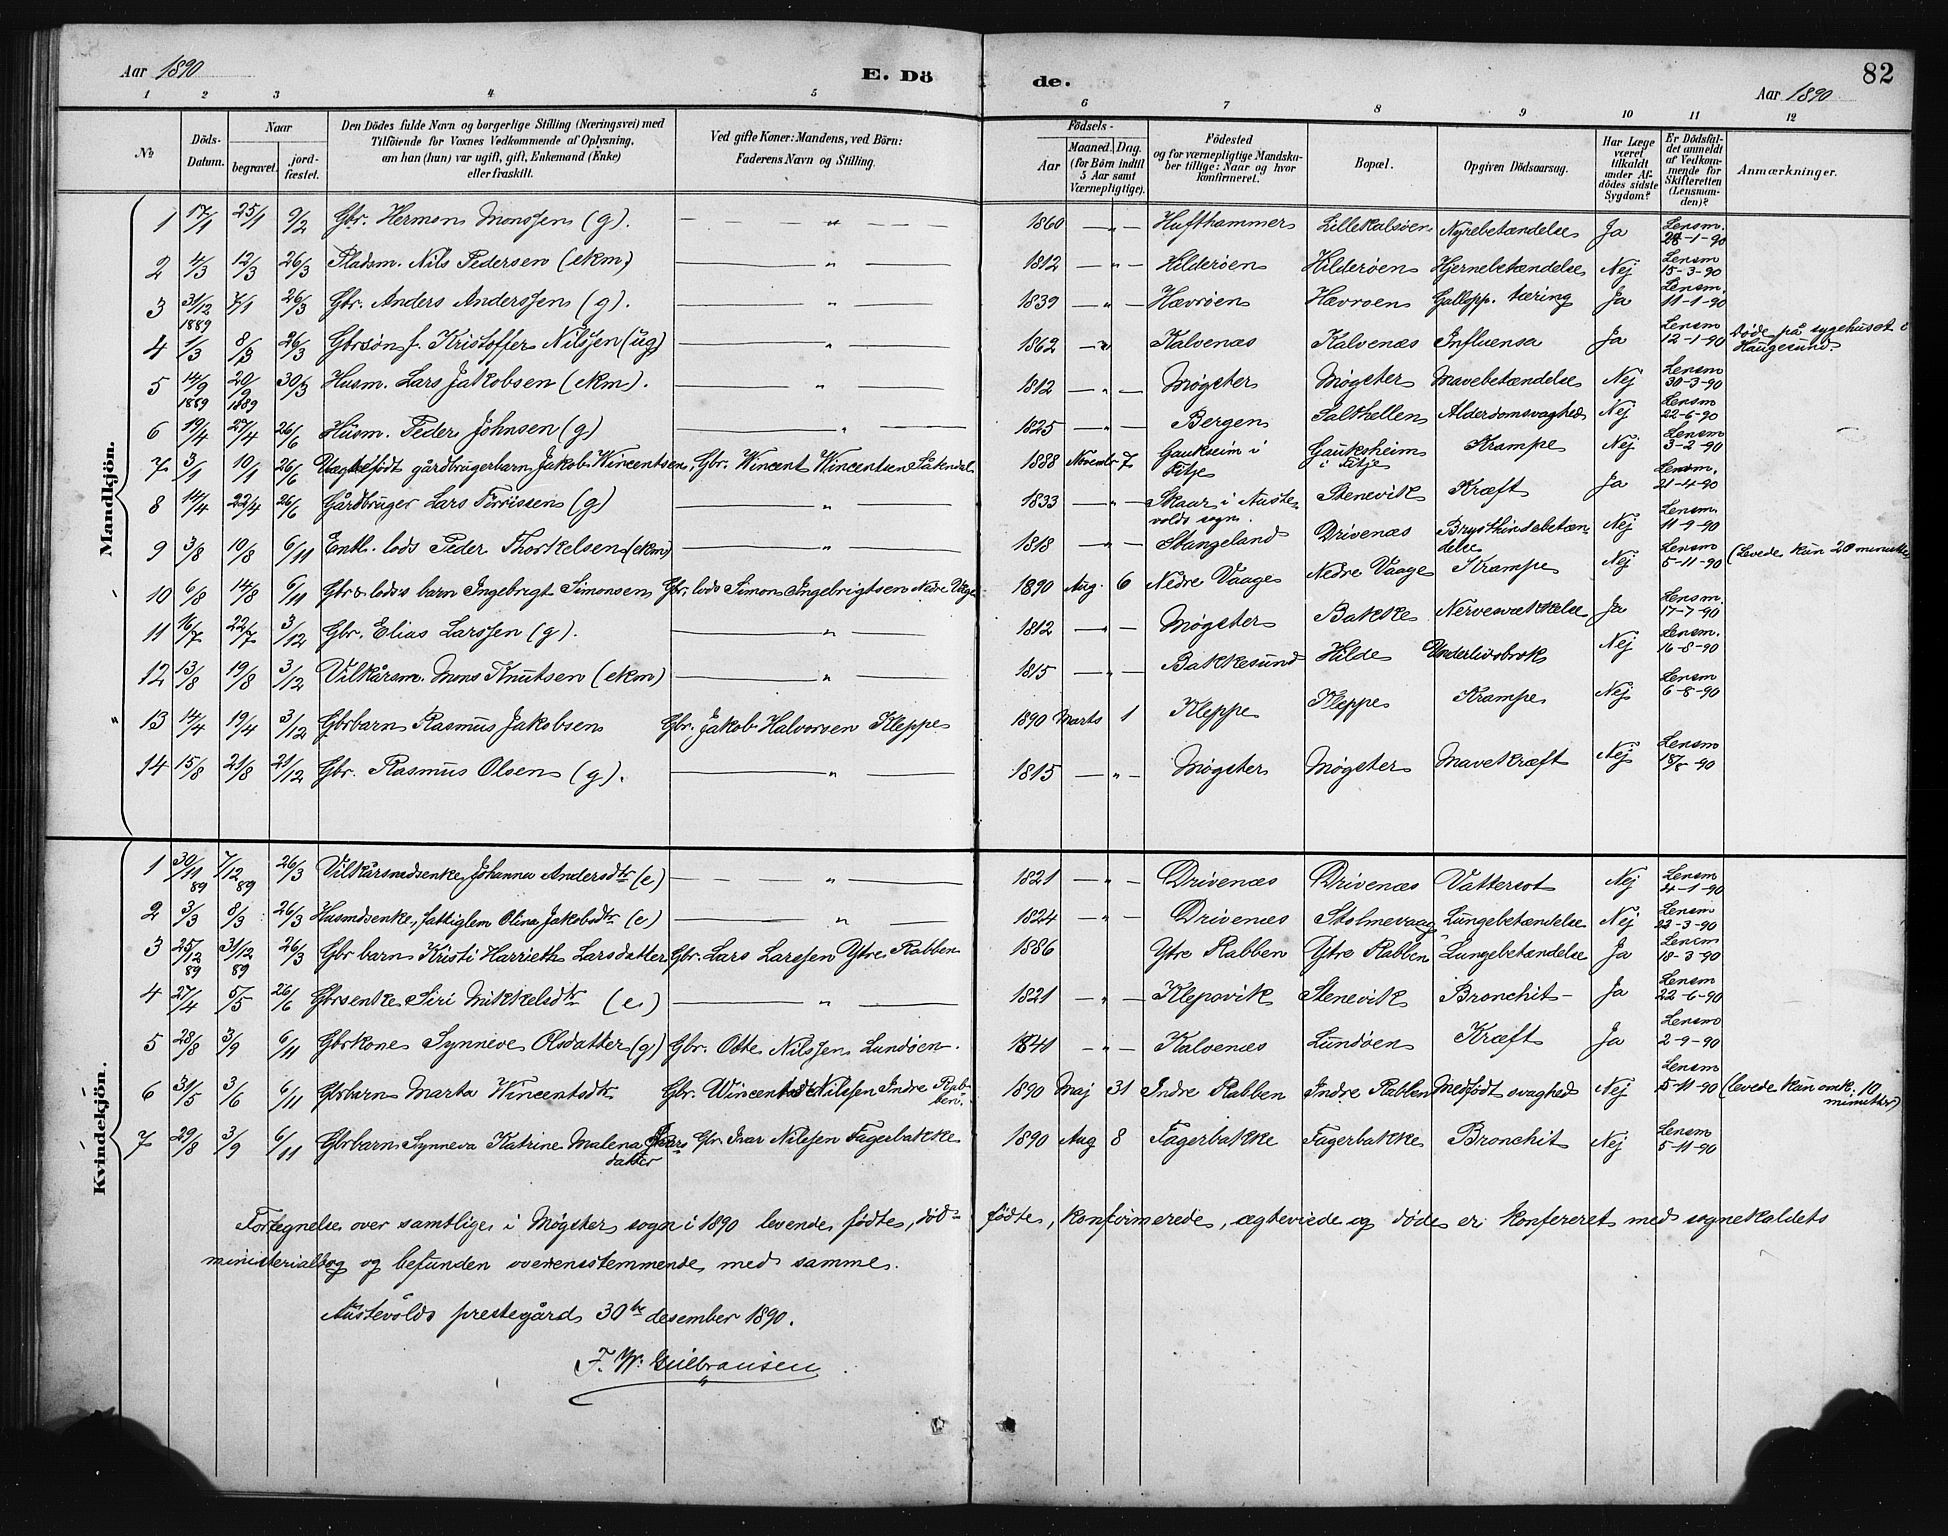 Aar 1890 E. Dö de. Aar 1890 82
1 2 3 4 5 6 7 8 9 10 11 12
No
Döds-Datum.
Naar begravet. jordfæstet.
Den Dödes fulde Navn og borgerlige Stilling (Næringsvei) med Tilföiende for Voxnes Vedkommende af Oplysning, om han (hun) var ugift, gift, Enkemand (Enke) eller fraskilt.
Ved gifte Koner: Mandens, ved Börn: Faderens Navn og Stilling.
Födsels- Aar Maaned. Dag. (for Börn indtil 5 Aar samt Værnepligtige).
Födested og for værnepligtige Mandskaber tillige: Naar og hvor konfirmeret.
Bopæl.
Opgiven Dödsaarsag.
Har Læge været tilkaldt under Afdödes sidste Sygdom?
Er Dödsfaldet anmeldt af Vedkommende for Skifteretten (Lensmanden)?
Anmærkninger.
Mandkjön.
1 17/1 25/1 9/2 Gbr. Herman Monssen (g). — " — 1860 — " — Hufthammer Lillekalsøen Nyrebetændelse Ja Lensm. 28-1-90
2 4/3 12/3 26/3 Pladsm. Nils Pedersen (ekm) — " — 1812 — " — Hilderøen Hilderøen Hjernebetændelse Nej Lensm 15-3-90
3 31/12 1889 7/1 26/3 Gbr. Anders Anderssen (g). — " — 1839 — " — Hævrøen Hævrøen Gallopp. tæring Ja Lensm. 11-1-90
4 1/3 8/3 26/3 Gbrsøn f. Kristoffer Nilssen (ug) — " — 1862 — " — Kalvenæs Kalvenæs Influensa Ja Lensm 12-1-90 Døde på sygehuset i Haugesund.
5 14/9 1889 20/9 1889 30/3 Husm. Lars Jakobsen (ekm). — " — 1812 — " — Møgster Møgster Mavebetændelse Nej Lensm 30-3-90
6 19/4 27/4 26/6 Husm. Peder Johnsen (g) — " — 1825 — " — Bergen Salthellen Alderdomsvaghed Nej Lensm 22-6-90
7 3/1 10/1 26/6 Uægtefødt gårdbrugerbarn Jakob Wincentsen, Gbr. Wincent Wincentsen 1888 Novembr 7 Gaukseim i Fitje Gauksheim i Fitje Krampe Nej Lensm 3-2-90
8 14/4 22/4 26/6 Gårdbruger Lars Torrissen (g) — " — 1833 — " — Skaar i Austevolds sogn. Stenevik Kræft Ja Lensm. 21-4-90
9 3/8 10/8 6/11 Enkl. lods Peder Thorkelsen (ekm) — " — 1818 — " — Stangeland Drivenæs Brysthindebetændelse Nej Lensm. 11-9-90
10 6/8 14/8 6/11 Gbr & lods's barn Ingebrigt Simonsen Gbr. lods Simon Ingebrigtsen Nedre Våge 1890 Aug. 6 Nedre Vaage Nedre Vaage Krampe Nej Lensm 5-11-90 (Levede kun 20 minutter
11 16/7 22/7 3/12 Gbr. Elias Larssen (g). — " — 1812 — " — Møgster Bakke Nervesvækkelse Ja Lensm. 17-7-90
12 13/8 19/8 3/12 Vilkårsm. Mons Knutsen (ekm) — " — 1815 — " — Bakkesund Hilde Underlivsbrok Nej Lensm. 16-8-90
13 14/4 19/4 3/12 Gbrbarn Rasmus Jakobsen Gbr. Jakob Halvorsen Kleppe 1890 Marts 1 Kleppe Kleppe Krampe Nej Lensm 6-8-90
14 15/8 21/8 21/12 Gbr. Rasmus Olsen (g). — " — 1815 — " — Møgster Møgster Mavekræft Nej Lensm 18/8-90
Kvindekjön.
1 30/11 89 7/12 89 26/3 Vilkårsmdsenke Johanna Andersdtr (e) — " — 1821 — " — Drivenæs Drivenæs Vattersot Nej Lensm 4-1-90
2 3/3 8/3 26/3 Husmdsenke, fattiglem Olina Jakobsdtr (e) — " — 1824 — " — Drivenæs Stolmevaag Lungebetændelse Nej Lensm 23-3-90
3 25/12 89 31/12 89 26/3 Gbr barn Kristi Harrieth Larsdatter Gbr. Lars Larssen Ytre Rabben 1886 Ytre Rabben Ytre Rabben Lungebetændelse Ja Lensm 18-3-90
4 27/4 5/5 26/6 Gbrsenke Siri Mikkelsdtr (e) — " — 1821 — " — Klepsvik Stenevik Bronchit — Ja Lensm 22-6-90
5 28/8 3/9 6/11 Gbrkone Synneve Olsdatter (g) Gbr. Otte Nilssen Lundøen. 1841 — " — Kalvenæs Lundøen Kræft Ja Lensm 2-9-90
6 31/5 3/6 6/11 Gbrbarn Marta Wincentsdtr Gbr. Wincent Nilssen Indre Rabben. 1890 Maj 31 Indre Rabben Indre Rabben Medfødt svaghed Nej Lensm 5-11-90 (levede kun omk. 10 minutter)
7 29/8 3/9 6/11 Gbrbarn Synneva Katrine Malena Ivarsdatter Gbr. Ivar Nilssen Fagerbakke 1890 Aug 8 Fagerbakke Fagerbakke Bronchit Nej Lensm 5-11-90
Fortegnelse over samtlige i Møgster sogn i 1890 levende fødte, død- fødte, konfirmerede, ægteviede og døde er konfereret med sognekaldets
ministerialbog og befunden overensstemmende med samme.
Austevolds prestegård 30te desember 1890.
F. W. Gulbransen